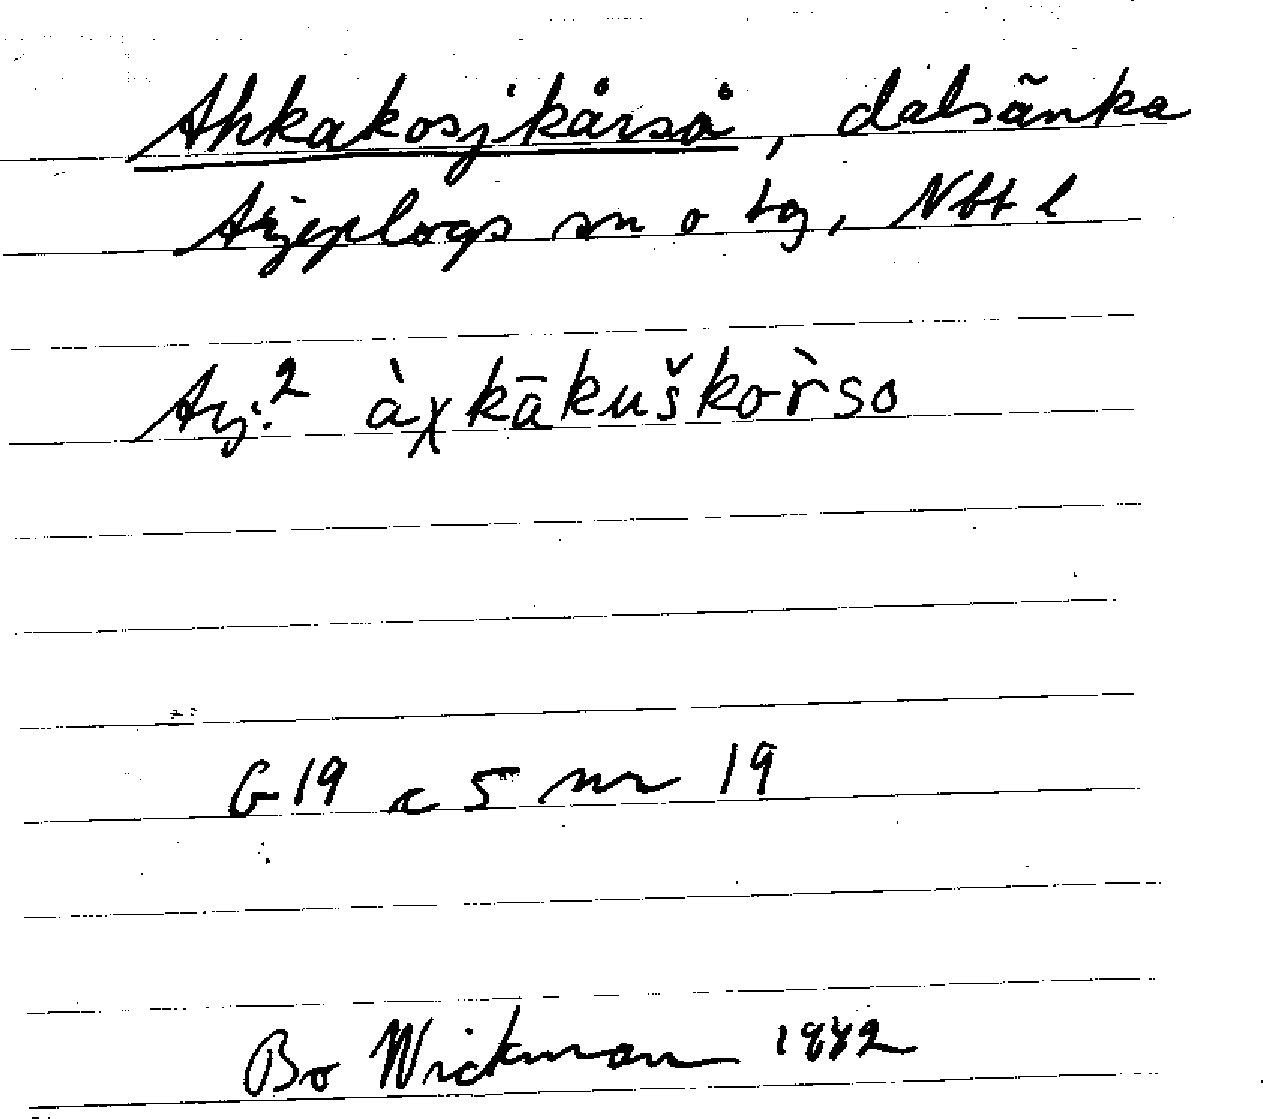 Ahkakosjkårså, dalsänka
Arjeplogs sn o tg, Nbt l
Arj.2 àχkākuškor̀so
G19 c 5 nr 19
Bo Wickman